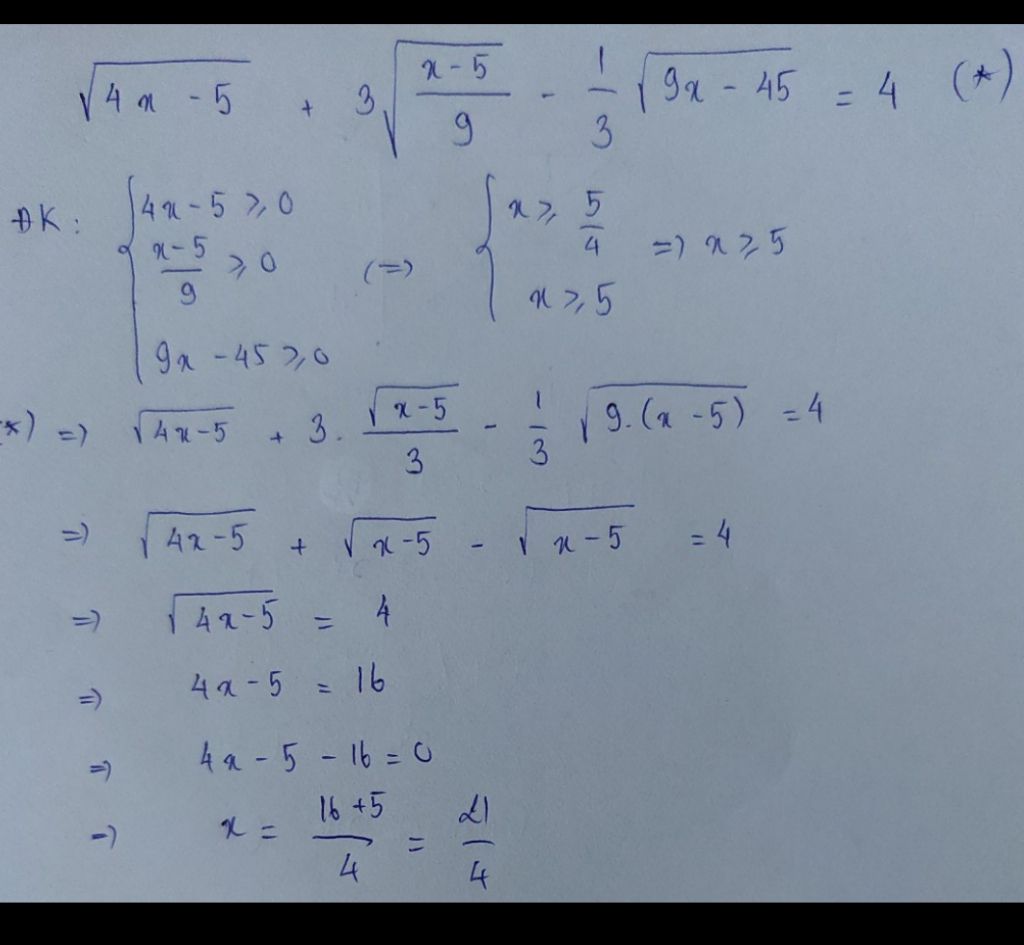 √(4x - 5) + 3√((x - 5)/9) - 1/3 √(9x - 45) = 4 (*)
ĐK: { 4x - 5 ≥ 0 ; (x - 5)/9 ≥ 0 ; 9x - 45 ≥ 0 (=) { x ≥ 5/4 ; x ≥ 5 => x ≥ 5
*) => √(4x - 5) + 3. √(x - 5)/3 - 1/3 √(9.(x - 5)) = 4
=> √(4x - 5) + √(x - 5) - √(x - 5) = 4
=> √(4x - 5) = 4
=> 4x - 5 = 16
=> 4x - 5 - 16 = 0
=> x = (16 + 5)/4 = 21/4